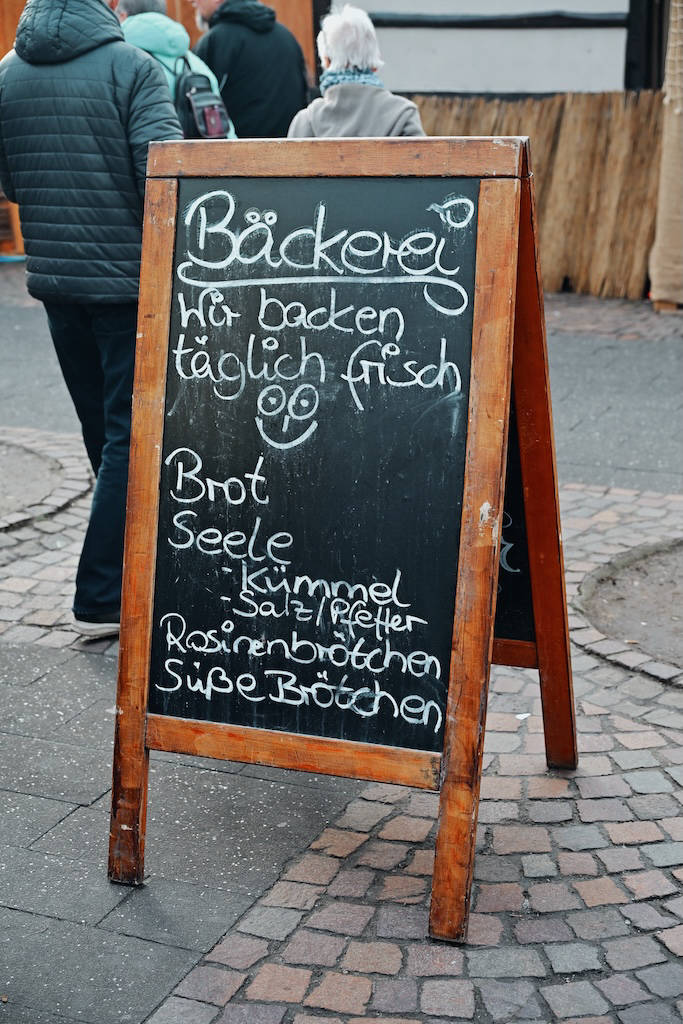 Bäckerei
Wir backen
täglich frisch
Brot
Seele
- Kümmel
- Salz/Pfeffer
Rosinenbrötchen
Süße Brötchen